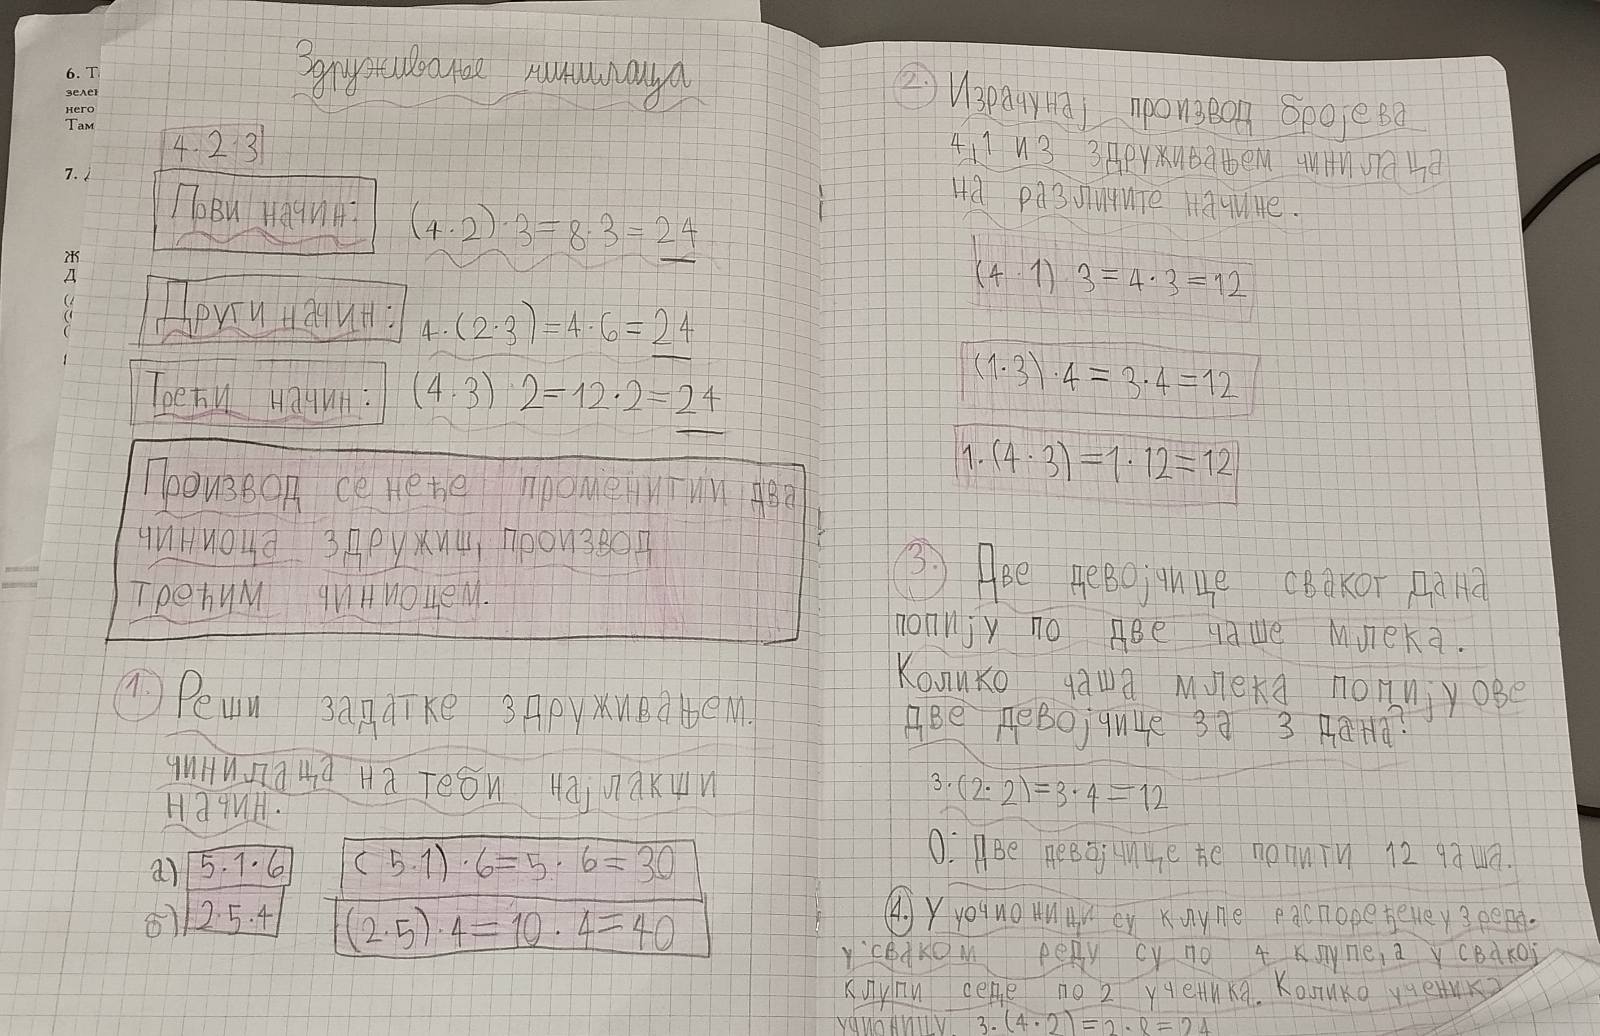 6. Т
зелен
него
Там
7.
Ж
Д
Здруживање чинилаца
4·2·3
Први начин: (4·2)·3=8·3=24
Други начин: 4·(2·3)=4·6=24
Трећи начин: (4·3)·2=12·2=24
Производ се неће променитии два
чиниоца здружиш, производ
трећим чиниоцем.
1. Реши задатке здруживањем.
чинилаца на теби најлакши
начин.
а) 5·1·6 (5·1)·6=5·6=30
б) 2·5·4 (2·5)·4=10·4=40
2. Израчунај производ бројева
4,1 и 3 здруживањем чинилаца
на различите начине.
(4·1)·3=4·3=12
(1·3)·4=3·4=12
1·(4·3)=1·12=12
3. Две девојчице сваког дана
попију по две чаше млека.
Колико чаша млека попију ове
две девојчице за 3 дана?
3·(2·2)=3·4=12
О: Две девојчице ће попити 12 чаша.
4. У учионици су клупе распоређене у 3 реда.
у сваком реду су по 4 клупе, а у свакој
клупи седе по 2 ученика. Колико ученика
учионицу. 3·(4·2)=3·8=24